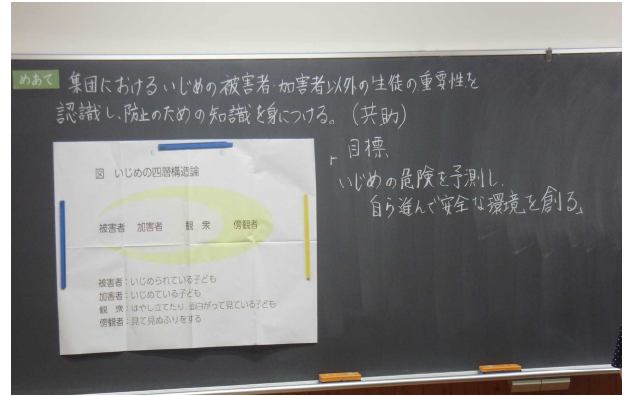 めあて 集団における いじめの被害者・加害者以外の生徒の重要性を
認識し、防止のための知識を身につける。(共助)
図 いじめの四層構造論
被害者 加害者 観衆 傍観者
被害者：いじめられている子ども
加害者：いじめている子ども
観 衆：はやし立てたり、面白がって見ている子ども
傍観者：見て見ぬふりをする
「目標
いじめの危険を予測し、
自ら進んで安全な環境を創る」